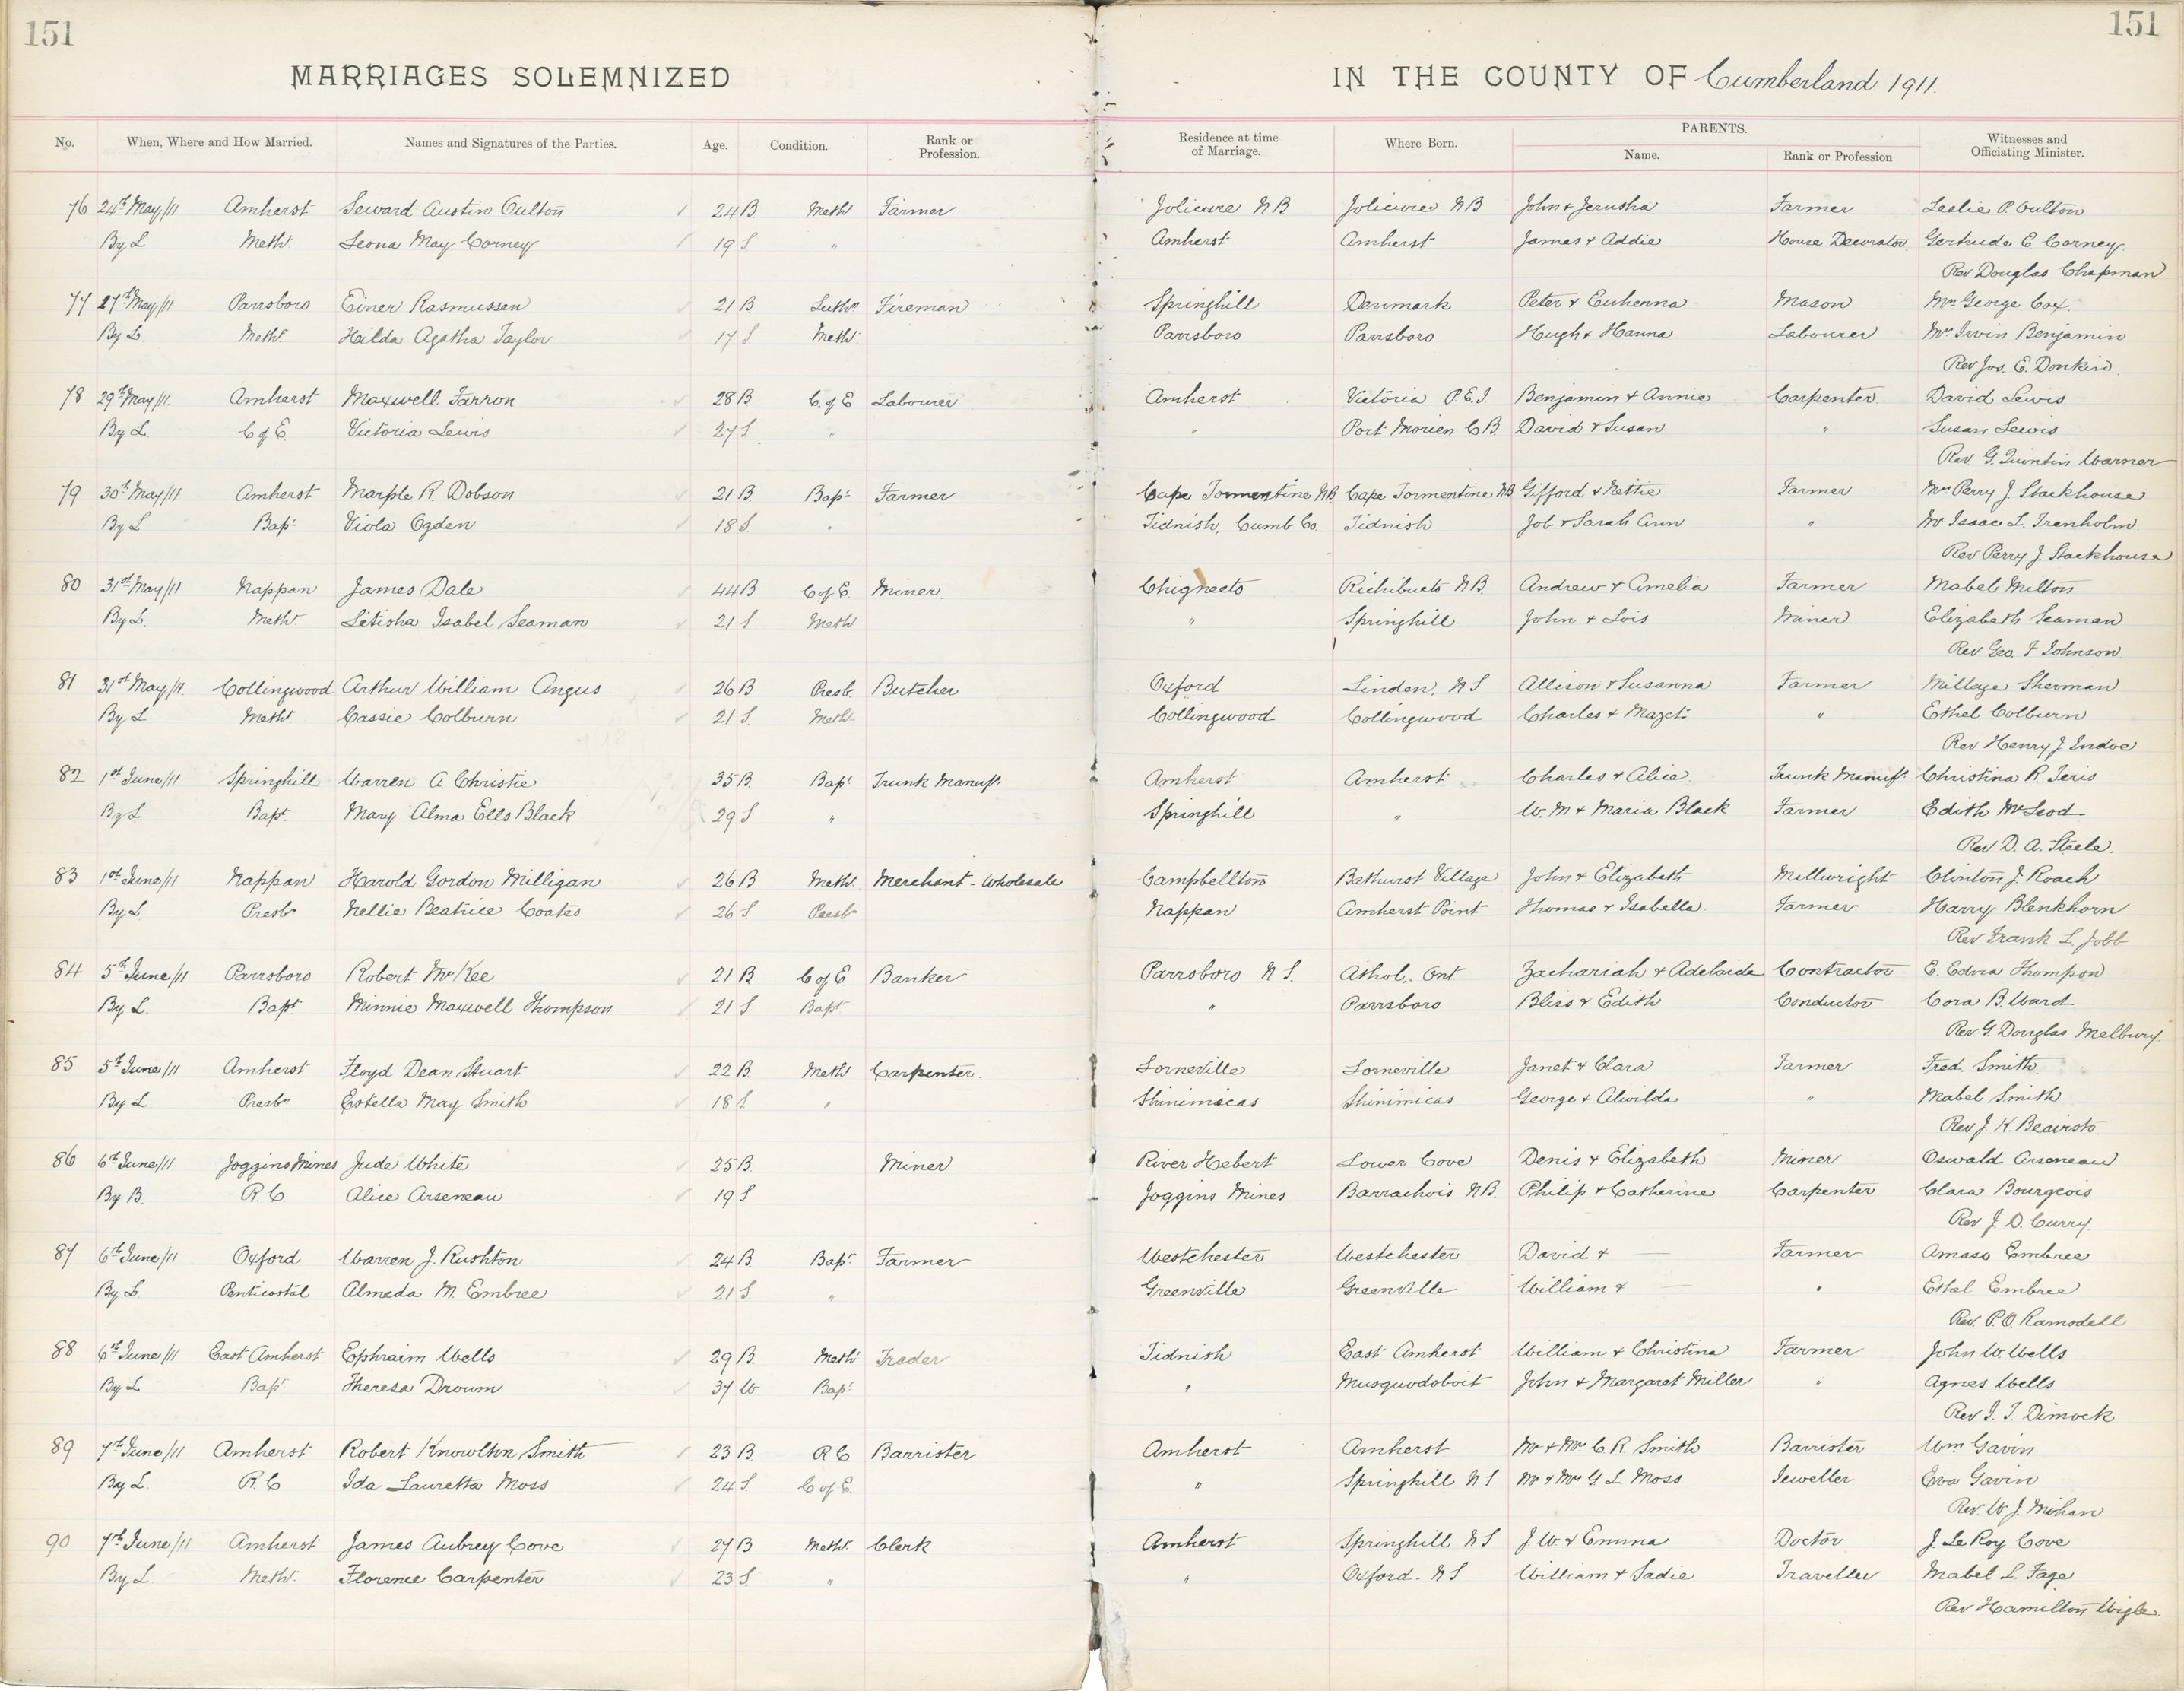 151 151
MARRIAGES SOLEMNIZED IN THE COUNTY OF Cumberland 1911.
No. When, Where and How Married. Names and Signatures of the Parties. Age. Condition. Rank or Profession. Residence at time of Marriage. Where Born. PARENTS. Name. Rank or Profession Witnesses and Officiating Minister.
76 24th May/11 Amherst Seward Austin Oulton 24 B. Meth Farmer Jolicure N B Jolicure N B John & Jerusha Farmer Leslie P. Oulton
By L Meth Leona May Corney 19 S " Amherst Amherst James & Addie House Decorator Gertrude E. Corney
Rev Douglas Chapman
77 27th May/11 Parrsboro Einer Rasmussen 21 B. Luthn Fireman Springhill Denmark Peter & Mason Mrs George Cox.
By L. Meth Hilda Agatha Taylor 17 S Meth Parrsboro Parrsboro Hugh & Hanna Labourer Mr Irvin Benjamin
Rev Jos. E. Donkin.
78 29th May/11. Amherst Maxwell Farron 28 B C. of E Labourer Amherst Victoria P.E.I. Benjamin & Annie Carpenter David Lewis
By L. C of E. Victoria Lewis 27 S. " " Port Morien C B. David & Susan " Susan Lewis
Rev. G. Quintin Warner
79 30th May/11 Amherst Marple R. Dobson 21 B. Bapt Farmer Cape Tormentine NB. Cape Tormentine NB Gifford & Nettie Farmer Mrs Perry J. Stackhouse
By L Bapt Viola Ogden 18 S. " Tidnish, Cumb Co. Tidnish Job & Sarah Ann " Mr Isaac L. Trenholm
Rev Perry J. Stackhouse
80 31st May/11 Nappan James Dale 44 B C of E. Miner. Chignecto Richibucto N B. Andrew & Amelia Farmer Mabel Milton
By L. Meth. Letisha Isabel Seaman 21 S Meth " Springhill John & Lois Miner Elizabeth Seaman
Rev Geo. F Johnson
81 31st May/11. Collingwood Arthur William Angus 26 B Presb. Butcher Oxford Linden, N S Allison & Susanna Farmer Millage Sherman
By L Meth Cassie Colburn 21 S. Meth Collingwood Collingwood Charles & " Ethel Colburn
Rev Henry J. Indoe
82 1st June/11 Springhill Warren A. Christie 35 B. Bapt Trunk Manuf. Amherst Amherst Charles & Alice Trunk Manuf. Christina R. Teris
By L. Bapt. Mary Alma Ells Black 29 S " Springhill " W. M & Maria Black Farmer Edith McLeod
Rev D. A. Steele.
83 1st June/11 Nappan Harold Gordon Milligan 26 B Meth. Merchant - Wholesale Campbellton Bathurst Village John & Elizabeth Millwright Clinton J. Roach
By L Presbn Nellie Beatrice Coates 26 S. Presb Nappan Amherst Point Thomas & Isabella. Farmer Harry Blenkhorn
Rev Frank L. Jobb
84 5th June/11 Parrsboro Robert McKee 21 B. C of E. Banker Parrsboro N S. Athol, Ont. Zachariah & Adelaide Contractor E. Edna Thompson
By L. Bapt Minnie Maxwell Thompson 21 S Bapt " Parrsboro Bliss & Edith Conductor Cora B. Ward
Rev. G. Douglas Melbury.
85 5th June/11 Amherst Floyd Dean Stuart 22 B. Meth Carpenter. Lorneville Lorneville Janet & Clara Farmer Fred. Smith
By L Presbn Estella May Smith 18 S " Shinimicas Shinimicas George & Alwilda " Mabel Smith
Rev J. H. Beairsto
86 6th June/11 Joggins Mines Jude White 25 B. Miner River Hebert Lower Cove Denis & Elizabeth Miner Oswald Arseneau
By B. R. C. Alice Arseneau 19 S Joggins Mines Barrachois N B. Philip & Catherine Carpenter Clara Bourgeois
Rev J. D. Curry.
87 6th June/11 Oxford Warren J. Rushton 24 B. Bapt. Farmer Westchester Westchester David & — Farmer Amasa Embree
By L. Penticostal Almeda M. Embree 21 S. " Greenville Greenville William & — " Ethel Embree
Rev. P.O. Ramsdell
88 6th June/11 East Amherst Ephraim Wells 29 B. Meth Trader Tidnish East Amherst William & Christina Farmer John W. Wells
By L Bapt Theresa Drowm 37 W Bapt " Musquodoboit John & Margaret Miller " Agnes Wells
Rev I. T. Dimock
89 7th June/11 Amherst Robert Knowlton Smith 23 B. R C Barrister Amherst Amherst Mr & Mrs C R Smith Barrister Wm Gavin
By L. R. C Ida Lauretta Moss 24 S. C of E. " Springhill N S Mr & Mrs G L Moss Jeweller Eva Gavin
Rev. W. J. Mihan
90 7th June/11 Amherst James Aubrey Cove 27 B Meth. Clerk Amherst Springhill N S J. W. & Emma Doctor J. LeRoy Cove
By L. Meth. Florence Carpenter 23 S. " " Oxford. N S William & Sadie Traveller Mabel L. Fage
Rev Hamilton Wigle.